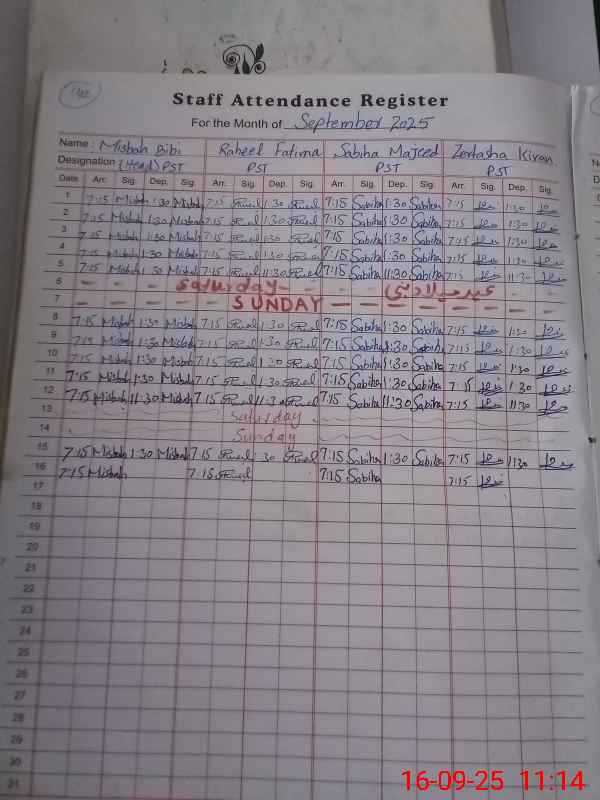 Staff Attendance Register
For the Month of September 2025
Name : Misbah Bibi Raheel Fatima Sabiha Majeed Zertasha Kiran
Designation (Head) PST PST PST PST
Date Arr. Sig. Dep. Sig. Arr. Sig. Dep. Sig. Arr. Sig. Dep. Sig. Arr. Sig. Dep. Sig.
1 7:15 Misbah 1:30 Misbah 7:15 1:30 7:15 Sabiha 1:30 Sabiha 7:15 1:30
2 7:15 Misbah 1:30 Misbah 7:15 1:30 7:15 Sabiha 1:30 Sabiha 7:15 1:30
3 7:15 Misbah 1:30 Misbah 7:15 1:30 7:15 Sabiha 1:30 Sabiha 7:15 1:30
4 7:15 Misbah 1:30 Misbah 7:15 1:30 7:15 Sabiha 1:30 Sabiha 7:15 1:30
5 7:15 Misbah 11:30 Misbah 7:15 11:30 7:15 Sabiha 11:30 Sabiha 7:15 11:30
6 - - Saturday - - عید میلادنبی - -
7 - - - - SUNDAY - - - - - -
8 7:15 Misbah 1:30 Misbah 7:15 1:30 7:15 Sabiha 1:30 Sabiha 7:15 1:30
9 7:15 Misbah 1:30 Misbah 7:15 1:30 7:15 Sabiha 1:30 Sabiha 7:15 1:30
10 7:15 Misbah 1:30 Misbah 7:15 1:30 7:15 Sabiha 1:30 Sabiha 7:15 1:30
11 7:15 Misbah 1:30 Misbah 7:15 1:30 7:15 Sabiha 1:30 Sabiha 7:15 1:30
12 7:15 Misbah 11:30 Misbah 7:15 11:30 7:15 Sabiha 11:30 Sabiha 7:15 11:30
13 Saturday
14 Sunday
15 7:15 Misbah 1:30 Misbah 7:15 1:30 7:15 Sabiha 1:30 Sabiha 7:15 1:30
16 7:15 Misbah 7:15 7:15 Sabiha 7:15
17
18
19
20
21
22
23
24
25
26
27
28
29
30
31
16-09-25 11:14